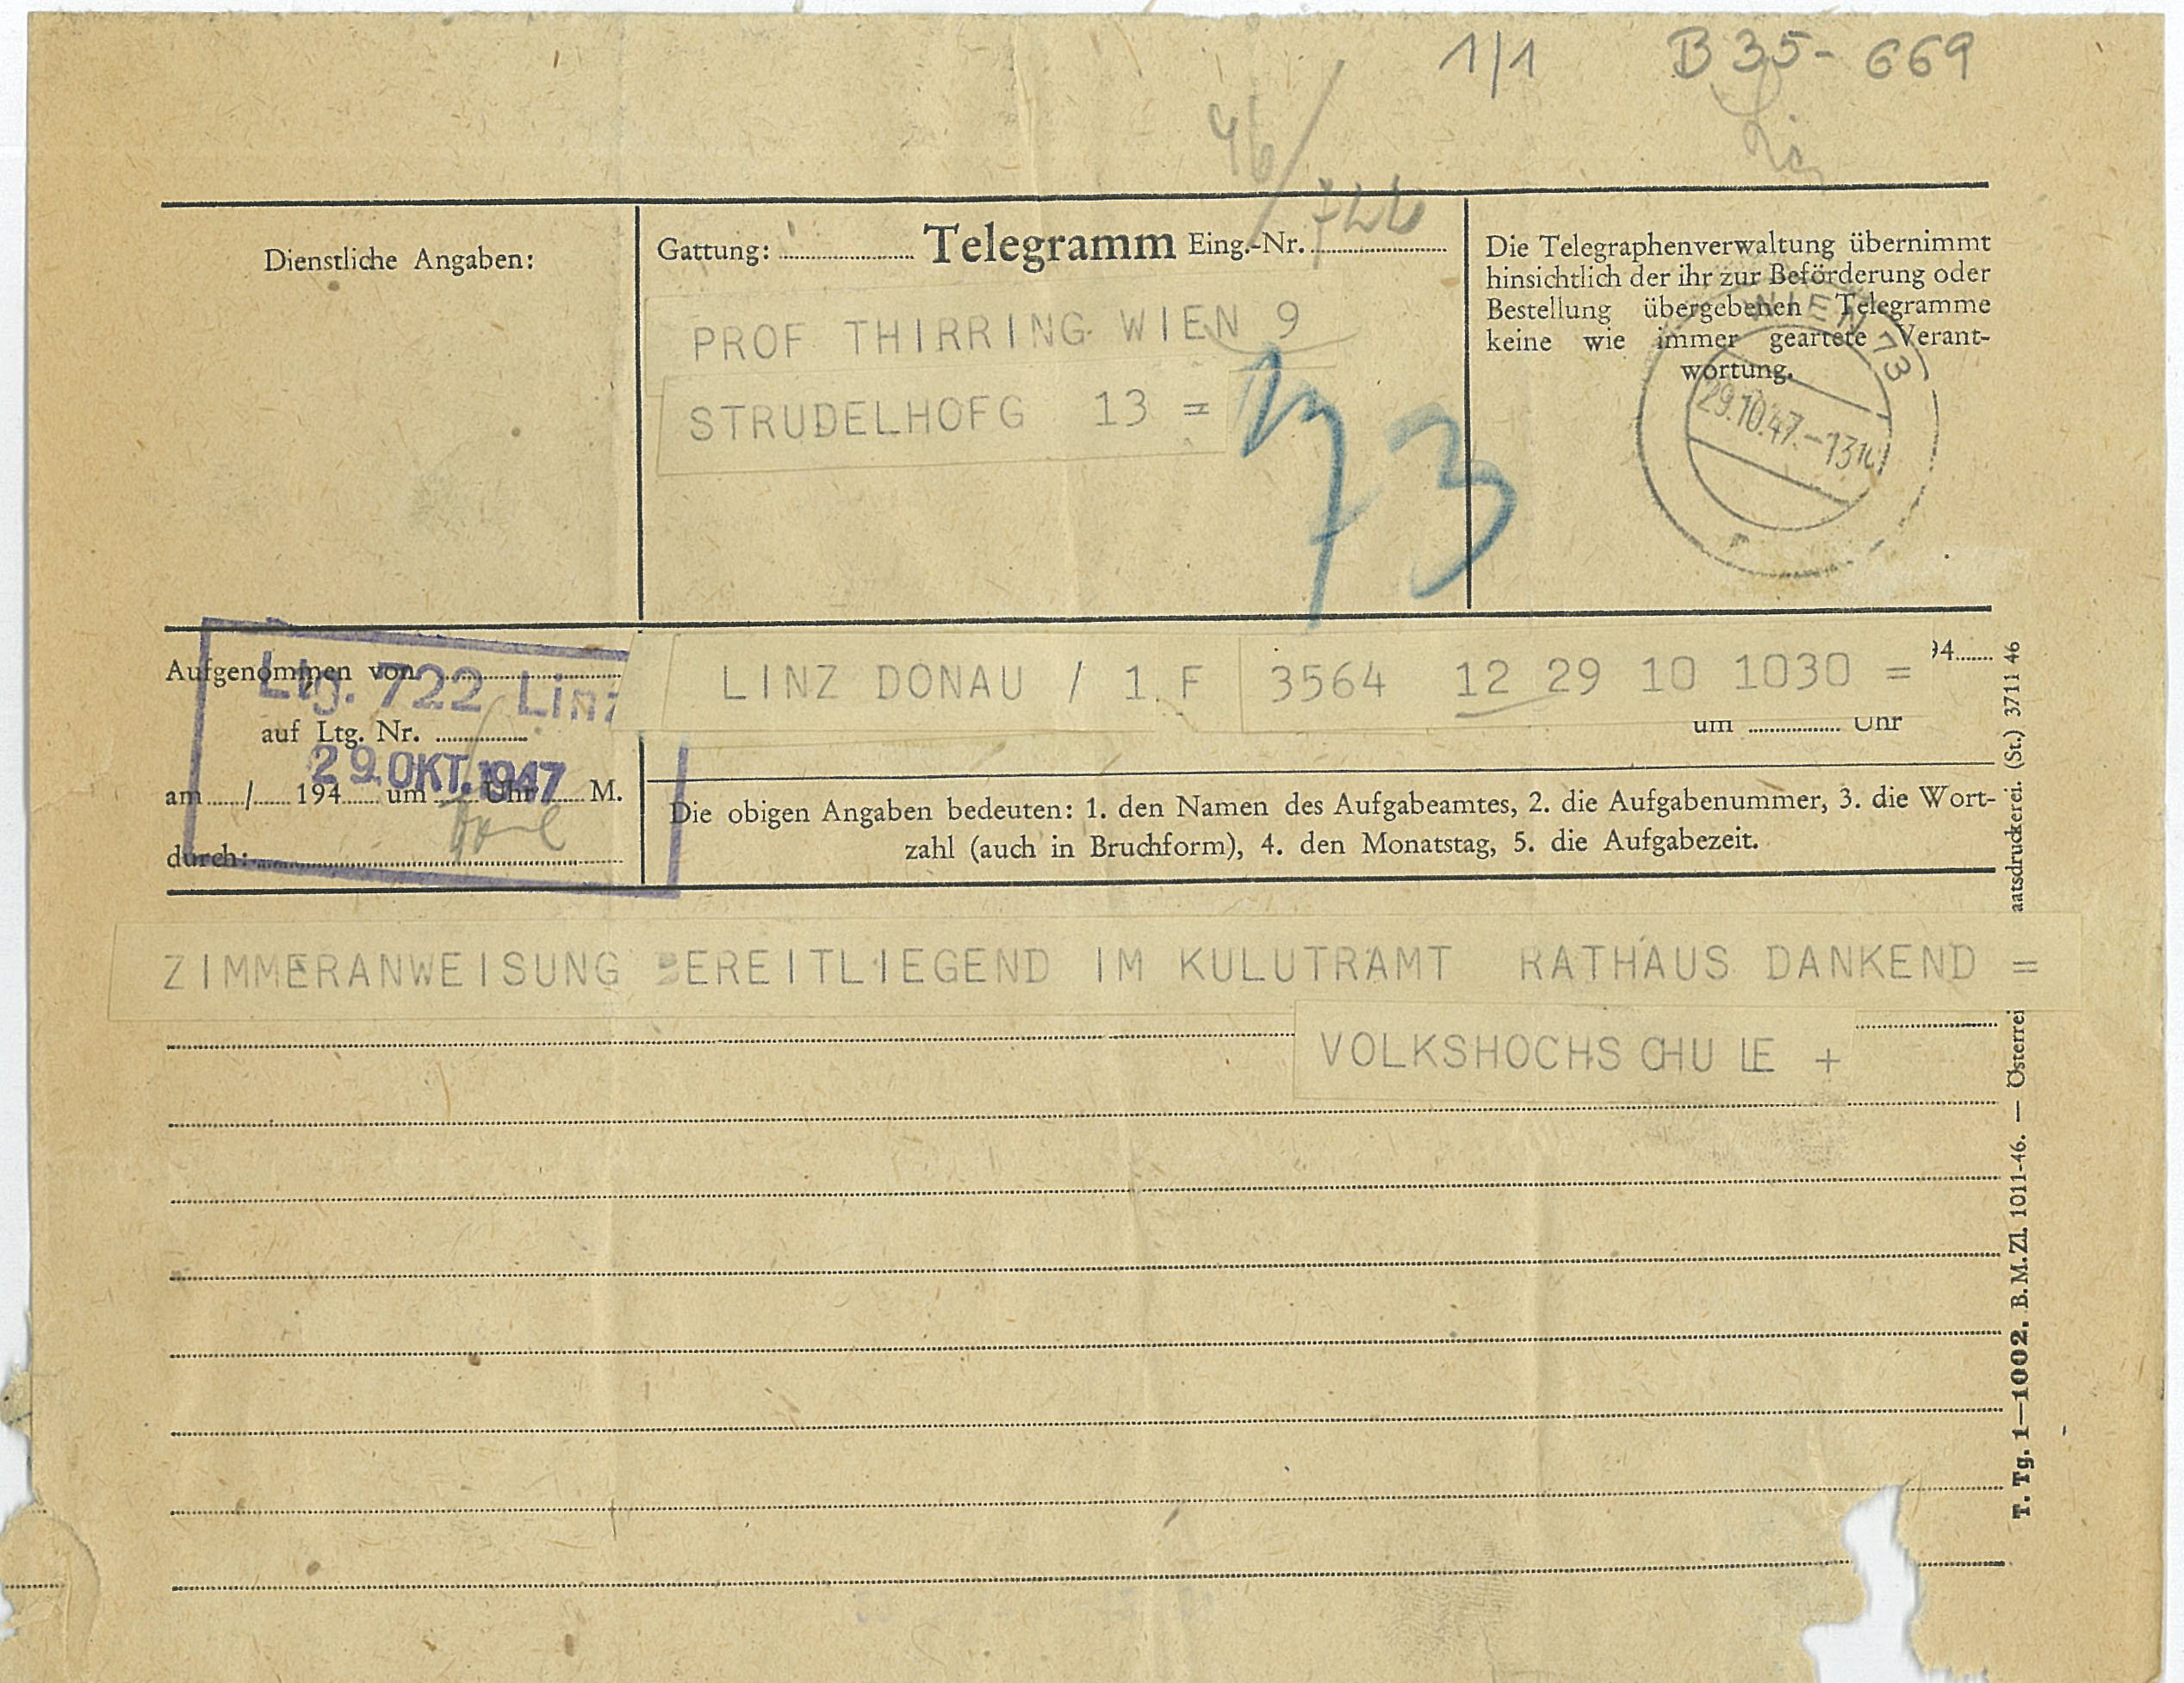 1/1 B 35-669
46/722
Dienstliche Angaben:
Gattung: Telegramm Eing.-Nr.
Die Telegraphenverwaltung übernimmt
hinsichtlich der ihr zur Beförderung oder
Bestellung übergebenen Telegramme
keine wie immer geartete Verant-
wortung.
WIEN 73
29.10.47.-13
PROF THIRRING WIEN 9
STRUDELHOFG 13 =
73
Aufgenommen von
auf Ltg. Nr.
am / 194 um Uhr M.
durch:
Ltg. 722 Linz
29. OKT. 1947
LINZ DONAU / 1 F 3564 12 29 10 1030 =
94
um Uhr
Die obigen Angaben bedeuten: 1. den Namen des Aufgabeamtes, 2. die Aufgabenummer, 3. die Wort-
zahl (auch in Bruchform), 4. den Monatstag, 5. die Aufgabezeit.
ZIMMERANWEISUNG BEREITLIEGEND IM KULUTRAMT RATHAUS DANKEND =
VOLKSHOCHSCHULE +
T. Tg. 1—1002. B. M. Zl. 1011-46. — Österrei aatsdruckerei. (St.) 3711 46